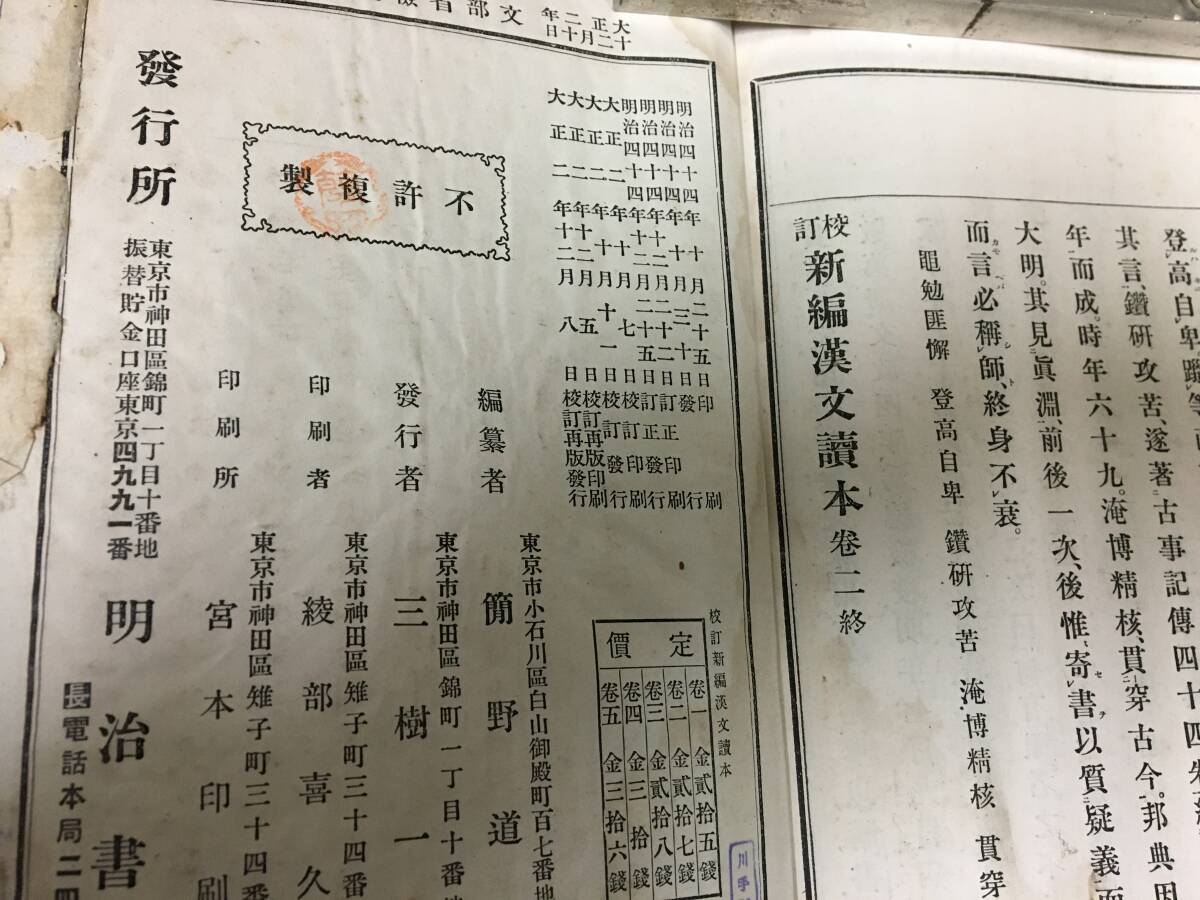 登高自卑
其言、鑽研攻苦、遂著古事記傳四十四
年而成。時年六十九。淹博精核、貫穿古今。邦典因
大明。其見眞淵、前後一次、後惟寄書以質疑義而
而言必稱師、終身不衰。
黽勉匪懈 登高自卑 鑽研攻苦 淹博精核 貫穿
校訂新編漢文讀本卷二終
大正二年十二月十日 文部省
明治四十四年十月二十五日印刷
明治四十四年十月三十日發行
明治四十四年十二月二十二日訂正印刷
明治四十四年十二月二十五日訂正發行
大正二年十月七日校訂印刷
大正二年十月十一日校訂發行
大正二年十二月五日校訂再版印刷
大正二年十二月八日校訂再版發行
校訂新編漢文讀本
定價
卷一 金貳拾五錢
卷二 金貳拾七錢
卷三 金貳拾八錢
卷四 金三拾錢
卷五 金三拾六錢
不許複製
東京市小石川區白山御殿町百七番地
編纂者 簡野道
東京市神田區錦町一丁目十番
發行者 三樹一
東京市神田區雉子町三十四番
印刷者 綾部喜久
東京市神田區雉子町三十四番
印刷所 宮本印刷
東京市神田區錦町一丁目十番地
發行所 明治書
振替貯金口座東京四九九一番
長電話本局二四
川手